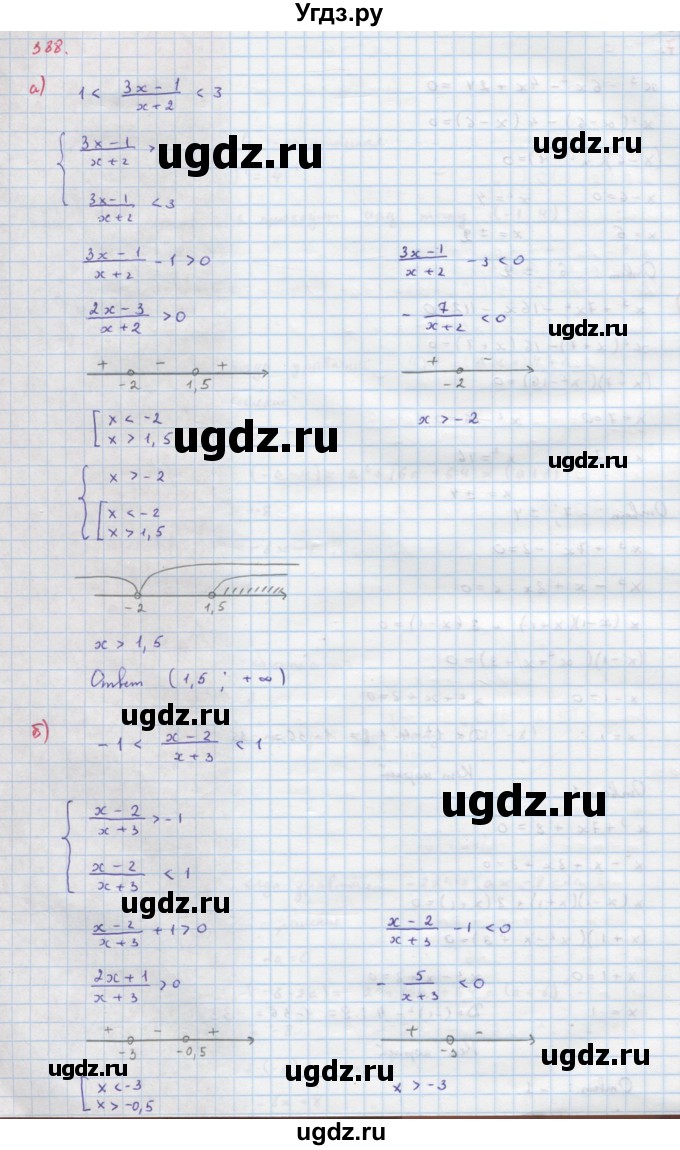 Угдз.ру
388.
а) 1 < (3x - 1)/(x + 2) < 3
{ (3x - 1)/(x + 2) >
ugdz.ru
ugdz.ru
(3x - 1)/(x + 2) < 3
(3x - 1)/(x + 2) - 1 > 0    (3x - 1)/(x + 2) - 3 < 0
(2x - 3)/(x + 2) > 0    - 7/(x + 2) < 0
ugdz.ru
+ - +    + -
-2 1,5    -2
[ x < -2    x > -2
x > 1,5
ugdz.ru
ugdz.ru
{ x > -2
[ x < -2
x > 1,5
-2 1,5
x > 1,5
Ответ (1,5 ; +∞)
ugdz.ru
б) -1 < (x - 2)/(x + 3) < 1
ugdz.ru
{ (x - 2)/(x + 3) > -1
(x - 2)/(x + 3) < 1
ugdz.ru
(x - 2)/(x + 3) + 1 > 0    (x - 2)/(x + 3) - 1 < 0
(2x + 1)/(x + 3) > 0    - 5/(x + 3) < 0
+ - +    + -
-3 -0,5    -3
ugdz.ru
ugdz.ru
[ x < -3    x > -3
x > -0,5
ugdz.ru